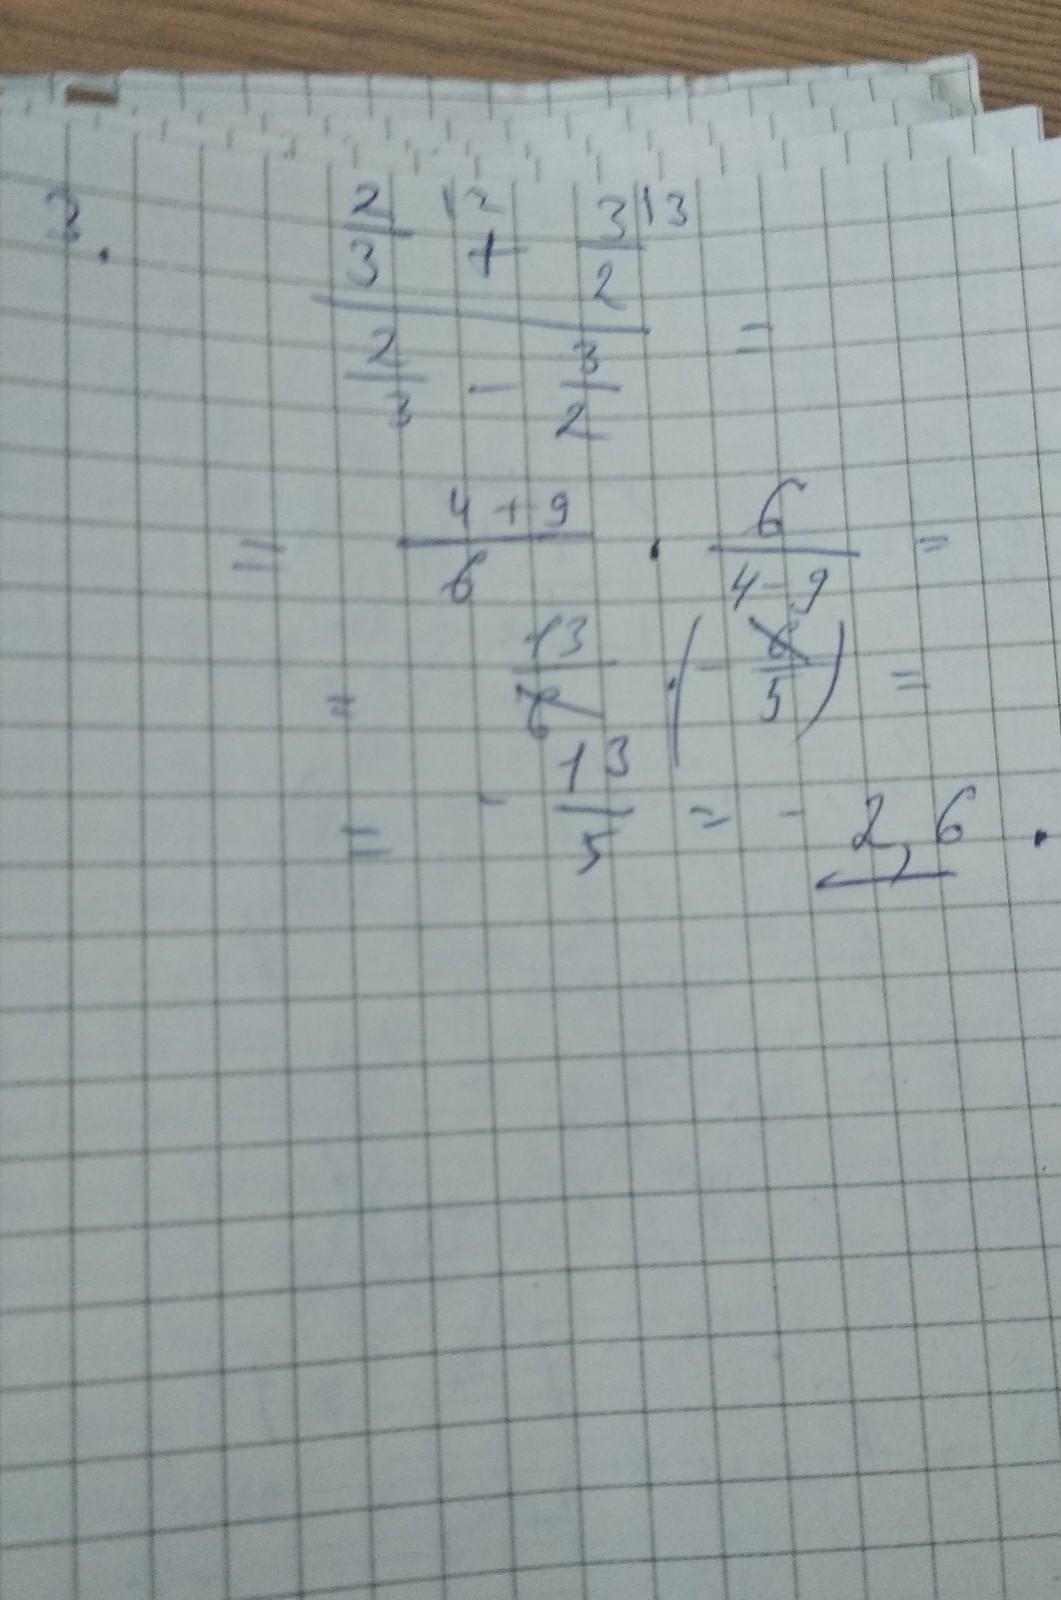 3. 2/3 |2 + 3/2 |3
2/3 - 3/2 =
= 4+9/6 · 6/4-9 =
= 13/6 · (- 6/5) =
= - 13/5 = - 2,6.